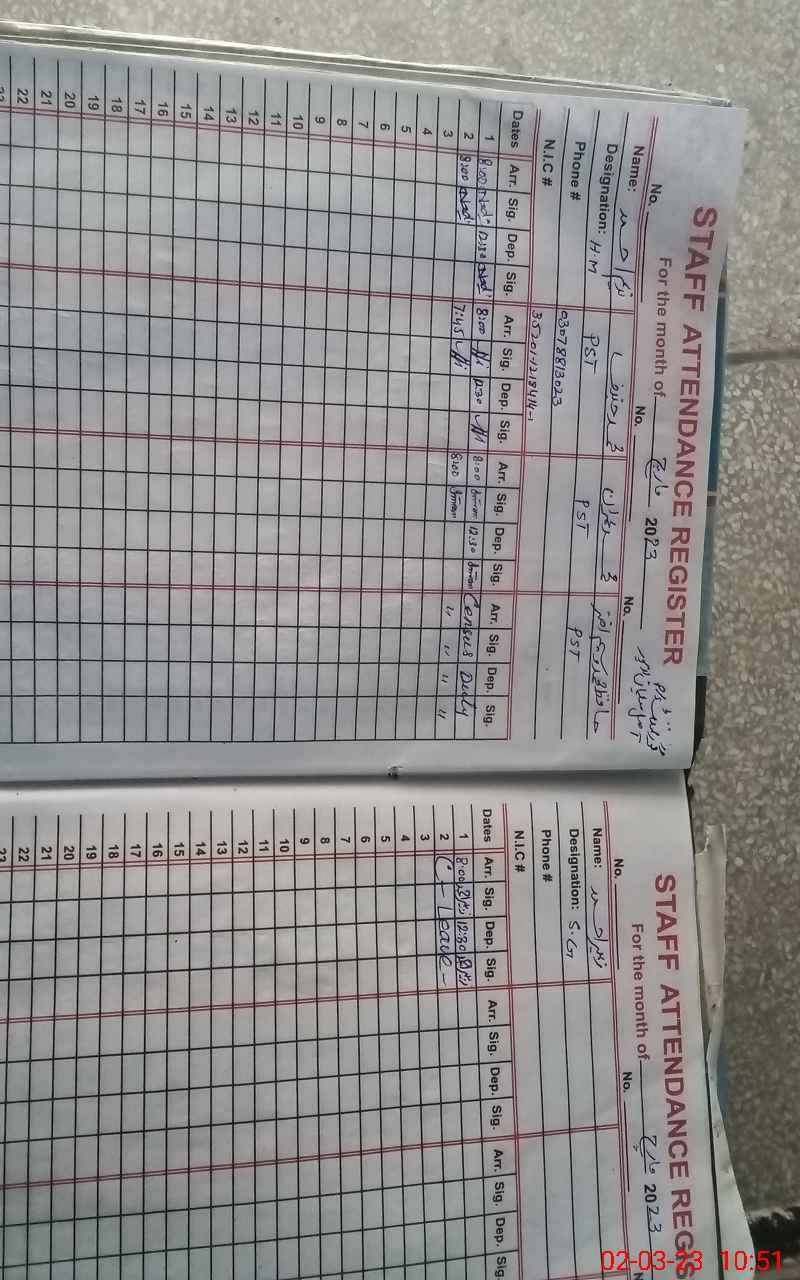 STAFF ATTENDANCE REGISTER
For the month of مارچ 2023
No. No. No. No.
Name:
Designation: H.M PST PST PST
Phone # 03078813023
N.I.C #
Dates Arr. Sig. Dep. Sig. Arr. Sig. Dep. Sig. Arr. Sig. Dep. Sig. Arr. Sig. Dep. Sig.
1 8:00 12:30 8:00 12:30 8:00 12:30 Census Duty
2 8:00 7:45 8:00 " " " "
3
4
5
6
7
8
9
10
11
12
13
14
15
16
17
18
19
20
21
22
23
STAFF ATTENDANCE REGIS
For the month of مارچ 2023
No. No. N
Name:
Designation: S.G
Phone #
N.I.C #
Dates Arr. Sig. Dep. Sig. Arr. Sig. Dep. Sig. Arr. Sig. Dep. Sig.
1 8:00 12:30
2 Leave
3
4
5
6
7
8
9
10
11
12
13
14
15
16
17
18
19
20
21
22
23
02-03-23 10:51